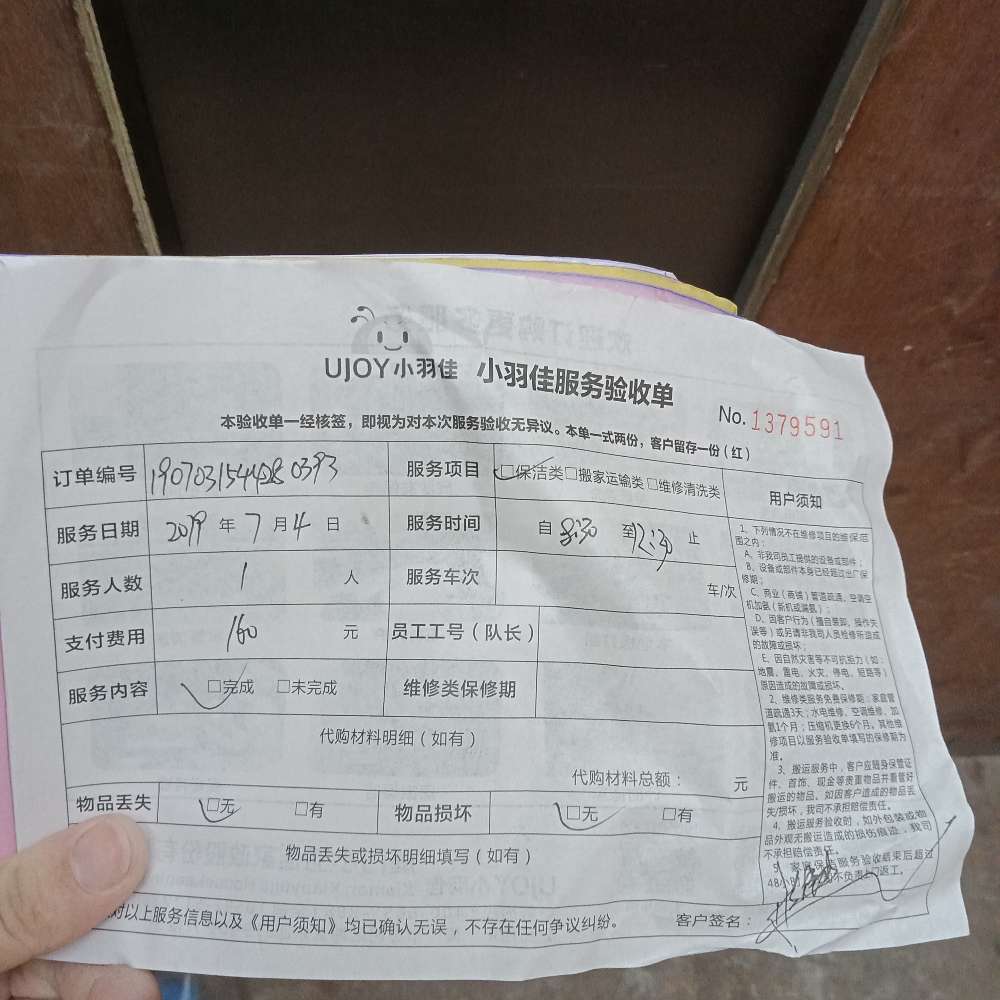 UJOY小羽佳 小羽佳服务验收单
No. 1379591
本验收单一经核签，即视为对本次服务验收无异议。本单一式两份，客户留存一份（红）
订单编号 服务项目 □保洁类□搬家运输类□维修清洗类
服务日期 2019 年 7 月 4 日 服务时间 自 8:30 至 12:30 止
服务人数 1 人 服务车次 车/次
支付费用 160 元 员工工号（队长）
服务内容 □完成 □未完成 维修类保修期
代购材料明细（如有）
代购材料总额： 元
物品丢失 □无 □有 物品损坏 □无 □有
物品丢失或损坏明细填写（如有）
对以上服务信息以及《用户须知》均已确认无误，不存在任何争议纠纷。
客户签名：
用户须知
1、下列情况不在维修项目的维保范
围之内：
A、非我司员工提供的设备或部件；
B、设备或部件本身已经超过出厂保
修期；
C、商业（商铺）管道疏通、空调空
机加氨（新机或漏氨）；
D、因客户行为（擅自装卸、操作失
误等）或另请非我司人员检修所造成
的故障或损坏；
E、因自然灾害等不可抗拒力（如：
地震、雷电、火灾、停电、短路等）
原因造成的故障或损坏。
2、维修类服务免费保修期：家庭管
道疏通3天；水电维修、空调维修、加
氨1个月；压缩机更换6个月。其他维
修项目以服务验收单填写的保修期为
准。
3、搬运服务中，客户应随身保管证
件、首饰、现金等贵重物品并看管好
搬运的物品。如因客户造成的物品丢
失/损坏，我司不承担赔偿责任。
4、搬运服务验收时，如外包装或物
品外观无搬运造成的损伤痕迹，我司
不承担赔偿责任。
5、家庭保洁服务验收结束后超过
48小时 不负责上门返工。